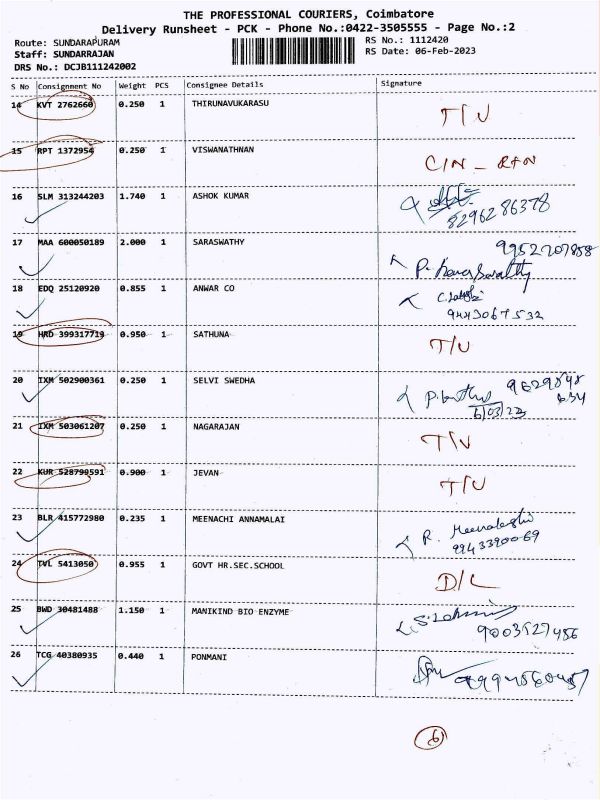 THE PROFESSIONAL COURIERS, Coimbatore
Delivery Runsheet - PCK - Phone No.:0422-3505555 - Page No.:2
Route: SUNDARAPURAM RS No.: 1112420
Staff: SUNDARRAJAN RS Date: 06-Feb-2023
DRS No.: DCJB111242002
S No Consignment No Weight PCS Consignee Details Signature
14 KVT 2762660 0.250 1 THIRUNAVUKARASU T/U
15 RPT 1372954 0.250 1 VISWANATHNAN C/N - RTN
16 SLM 313244203 1.740 1 ASHOK KUMAR
8296286378
17 MAA 600050189 2.000 1 SARASWATHY 9952707858
18 EDQ 25120920 0.855 1 ANWAR CO
9443067532
19 HRD 399317713 0.950 1 SATHUNA T/U
20 IXM 502900361 0.250 1 SELVI SWEDHA 9629848
634
21 IXM 503061207 0.250 1 NAGARAJAN T/U
22 KUR 528799591 0.900 1 JEVAN T/U
23 BLR 415772980 0.235 1 MEENACHI ANNAMALAI R. Meenakshi
9943390069
24 TVL 5413050 0.955 1 GOVT HR.SEC.SCHOOL D/L
25 BWD 30481488 1.150 1 MANIKIND BIO ENZYME
9003527486
26 TCG 40380935 0.440 1 PONMANI
6